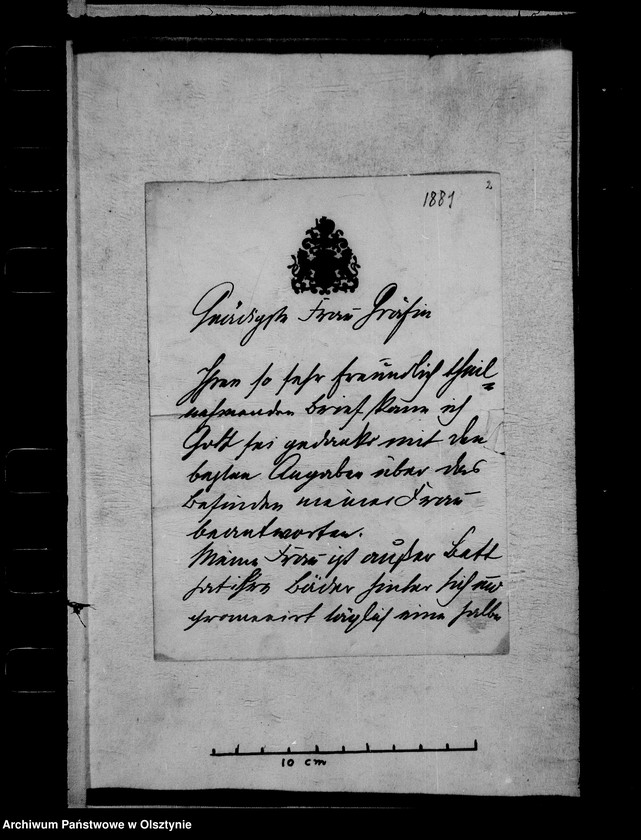 2.
1881
Gnädigste Frau Gräfin
Ihren so sehr freundlich theil=
nehmenden Brief kann ich
Gott sei gedankt mit den
besten Angaben über das
Befinden meiner Frau
beantworten.
Meine Frau ist außer Bett
hat ihre Bäder hinter sich und
promenirt täglich eine halbe
10 cm
Archiwum Państwowe w Olsztynie